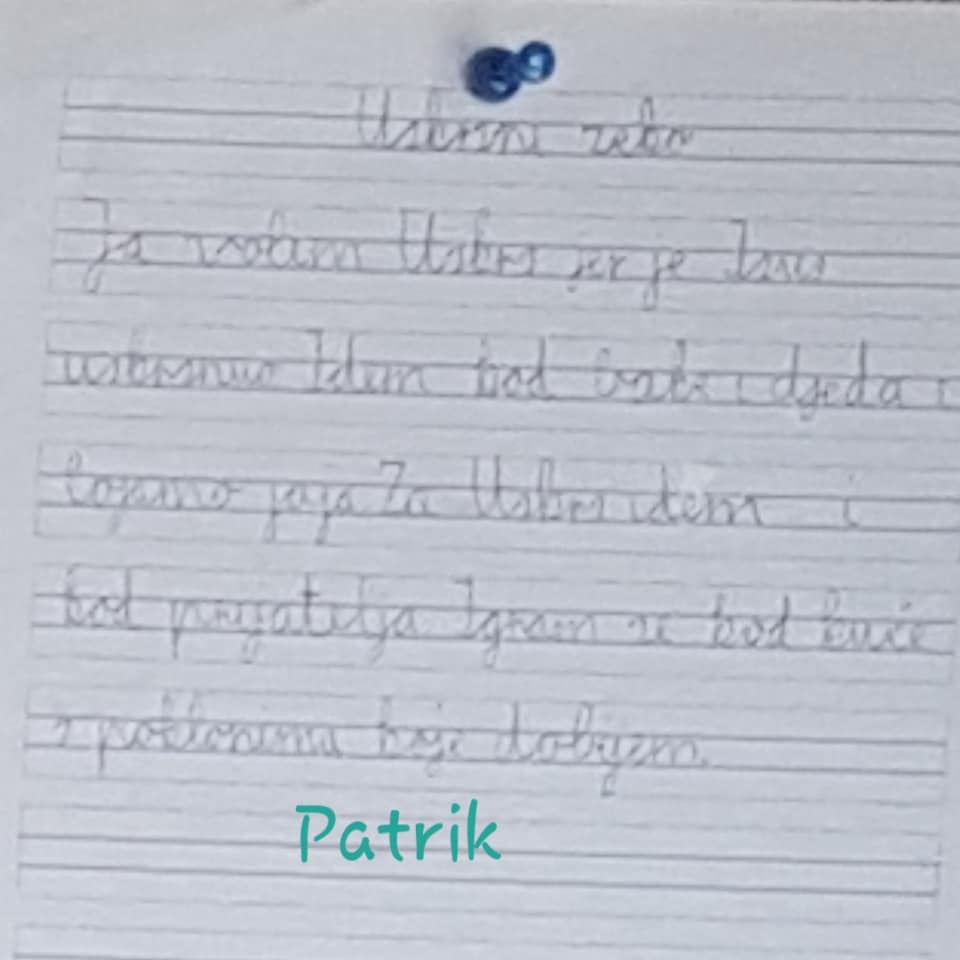 Uskrsni zeko
Ja volim Uskrs jer je Isus
uskrsnuo Idem kod bake i djeda i
bojamo jaja Za Uskrs idem i
kod prijatelja Igram se kod kuće
s poklonima koje dobijem.
Patrik